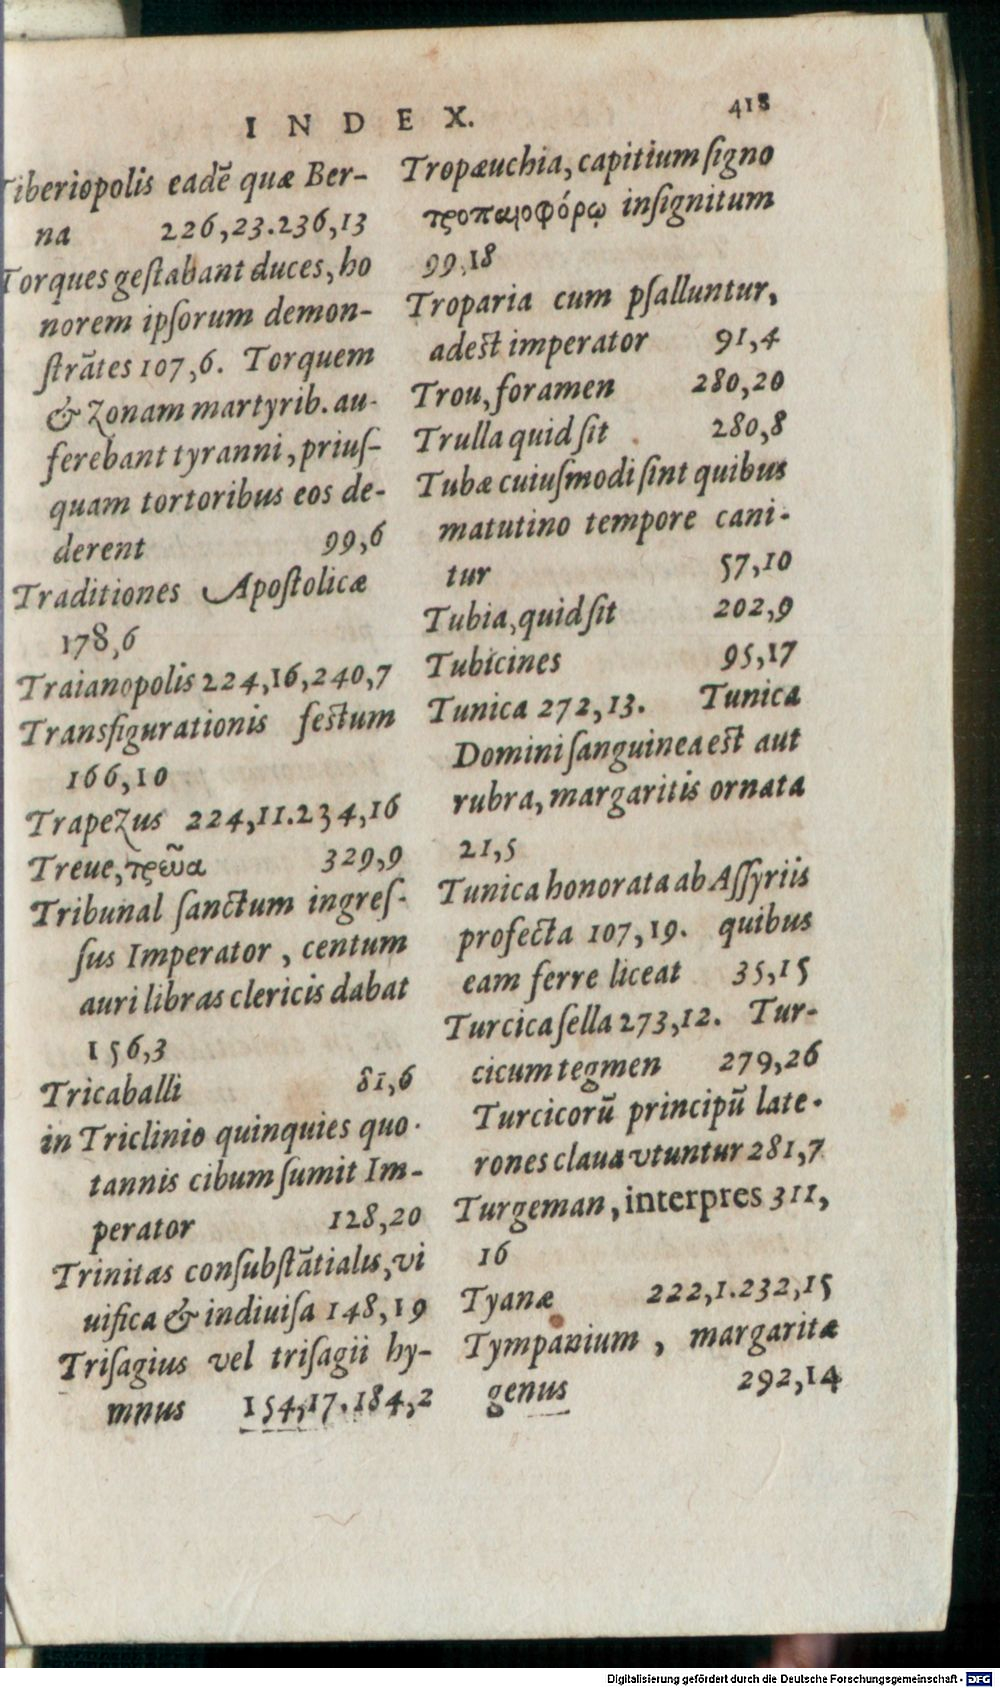 INDEX.
418
Tiberiopolis eadē quæ Ber-
na 226,23.236,13
Torques geſtabant duces, ho
norem ipſorum demon-
ſtrātes 107,6. Torquem
& Zonam martyrib. au-
ferebant tyranni, priuſ-
quam tortoribus eos de-
derent 99,6
Traditiones Apoſtolicæ
178,6
Traianopolis 224,16,240,7
Transfigurationis feſtum
166,10
Trapezus 224,11.234,16
Treue, τρεῦα 329,9
Tribunal ſanctum ingreſ-
ſus Imperator, centum
auri libras clericis dabat
156,3
Tricaballi 81,6
in Triclinio quinquies quo-
tannis cibum ſumit Im-
perator 128,20
Trinitas conſubſtātialis, vi
uifica & indiuiſa 148,19
Triſagius vel triſagii hy-
mnus 154,17.184,2
Tropæuchia, capitium ſigno
τροπαιοφόρῳ inſignitum
99,18
Troparia cum pſalluntur,
adeſt imperator 91,4
Trou, foramen 280,20
Trulla quid ſit 280,8
Tubæ cuiuſmodi ſint quibus
matutino tempore cani-
tur 57,10
Tubia, quid ſit 202,9
Tubicines 95,17
Tunica 272,13. Tunica
Domini ſanguinea eſt aut
rubra, margaritis ornata
21,5
Tunica honorata ab Aſſyriis
profecta 107,19. quibus
eam ferre liceat 35,15
Turcica ſella 273,12. Tur-
cicum tegmen 279,26
Turcicorū principū late-
rones claua vtuntur 281,7
Turgeman, interpres 311,
16
Tyanæ 222,1.232,15
Tympanium, margaritæ
genus 292,14
Digitalisierung gefördert durch die Deutsche Forschungsgemeinschaft - DFG